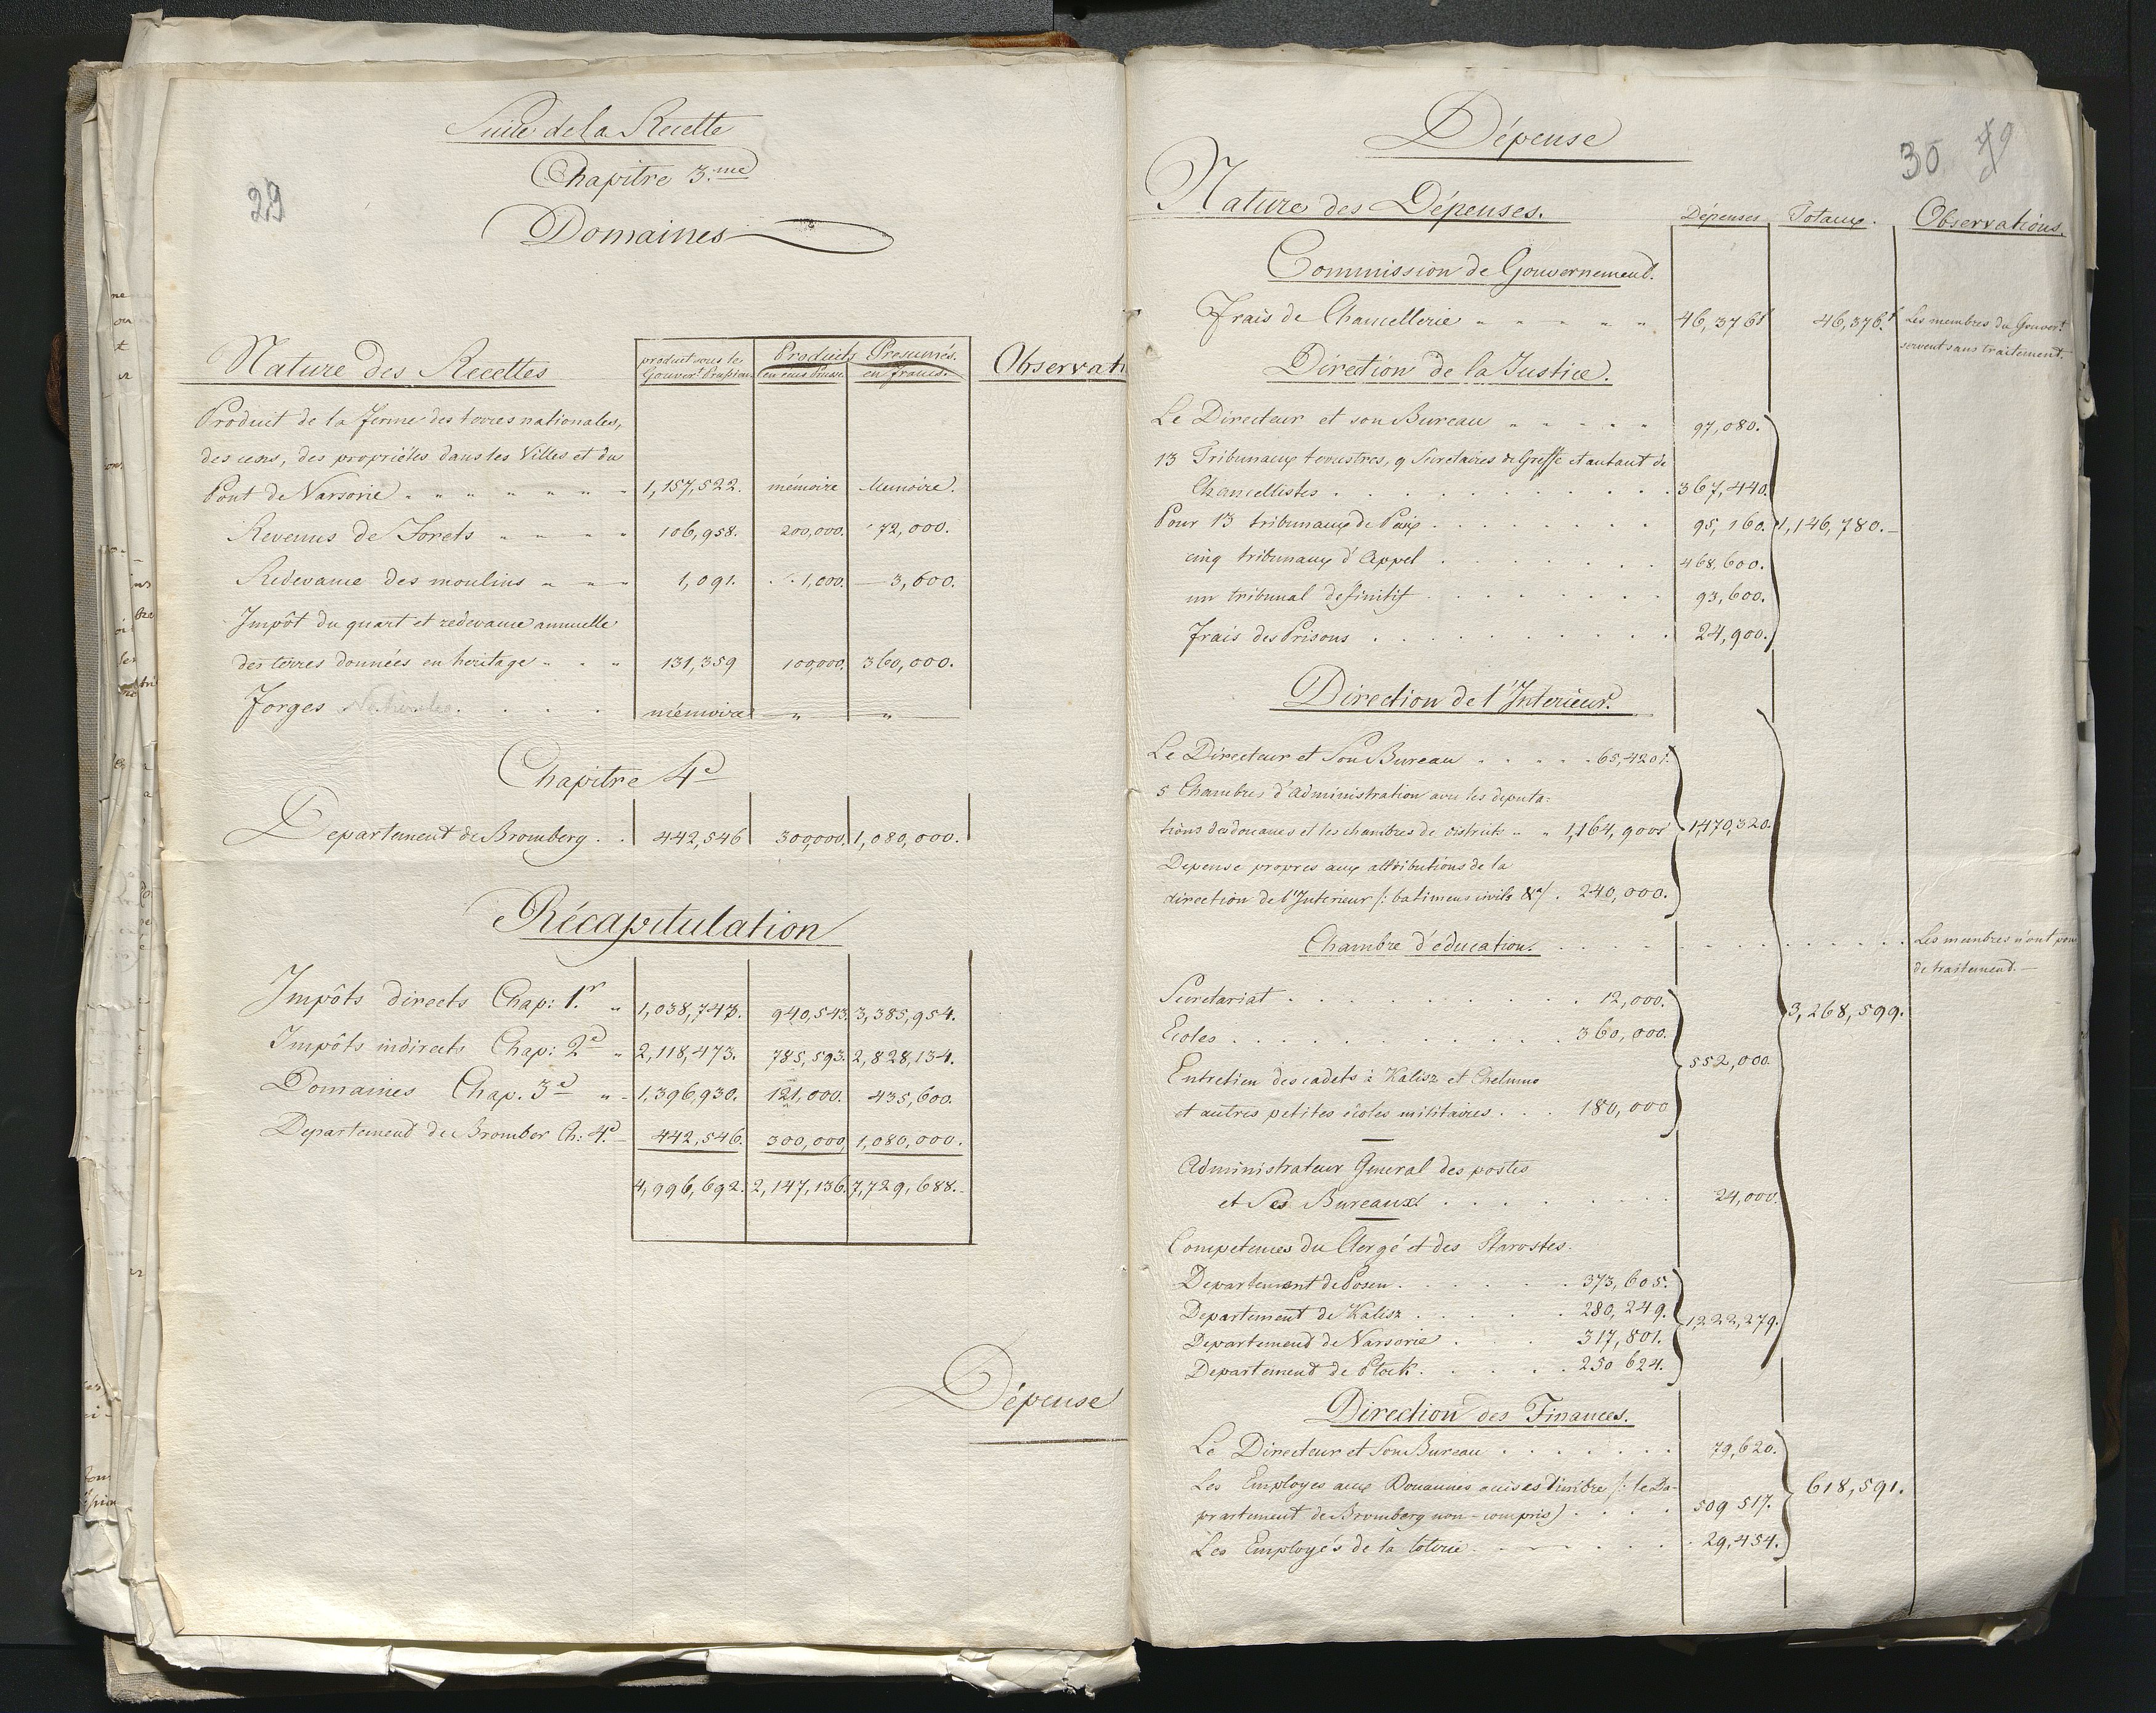 Suite de la Recette
Chapitre 3.me
29
Domaines
Nature des Recettes produit sous le Gouvert. Prussien Produits Presumés. en ecus Prusse en francs. Observati
Produit de la ferme des terres nationales,
des cens, des propriétés dans les Villes et du
Pont de Varsovie 1,157,522. mémoire Memoire.
Revenus de Forets 106,958. 200,000. 72,000.
Redevance des moulins 1,091. 1,000. 3,600.
Impôt du quart et redevance annuelle
des terres données en heritage 131,359 100,000. 360,000.
Forges Nationales mémoire " "
Chapitre 4e
Departement de Bromberg 442,546 300,000. 1,080,000.
Récapitulation
Impôts directs Chap: 1.r 1,038,743. 940,543. 3,385,954.
Impôts indirects Chap: 2e 2,118,473. 785,593. 2,828,134.
Domaines Chap. 3e 1,396,930. 121,000. 435,600.
Departement de Bromber Ch: 4e 442,546. 300,000 1,080,000.
4,996,692. 2,147,136. 7,729,688.
Dépense
Dépense
30 49
Nature des Dépenses. Dépenses Totaux. Observations.
Commission de Gouvernement.
Frais de Chancellerie 46,376f 46,376.f Les membres du Gouvert.
servent sans traitement.
Direction de la Justice.
Le Directeur et son Bureau 97,080.
13 Tribunaux terrestres, 9 Secretaires de Greffe et autant de
Chancellistes 367,440.
Pour 13 tribunaux de Paix 95,160. 1,146,780.
cinq tribunaux d'Appel 468,600.
un tribunal definitif 93,600.
frais des Prisons 24,900.
Direction de l'Interieur.
Le Directeur et Son Bureau 65,420f.
5 Chambres d'Administration avec les deputa:
tions des douanes et les chambres de districts 1,164,900f 1,470,320.
Depense propres aux attributions de la
direction de l'Interieur /: batimens civils &a/. 240,000.
Chambre d'éducation. Les membres n'ont point
de traitement.
Secretariat 12,000. 3,268,599.
Ecoles 360,000.
552,000.
Entretien des cadets à Kalisz et Chelmno
et autres petites écoles militaires 180,000
Administrateur General des postes
et Ses Bureaux 24,000.
Competences du Clergé et des Starostes.
Departement de Posen 373,605.
Departement de Kalisz 280,249. 1,222,279.
Departement de Varsovie 317,801.
Departement de Plock 250 624.
Direction des Finances.
Le Directeur et Son Bureau 79,620.
Les Employes aux Douannes timbre /: le De-
partement de Bromberg non-compris) 509 517. 618,591.
Les Employés de la loterie 29,454.